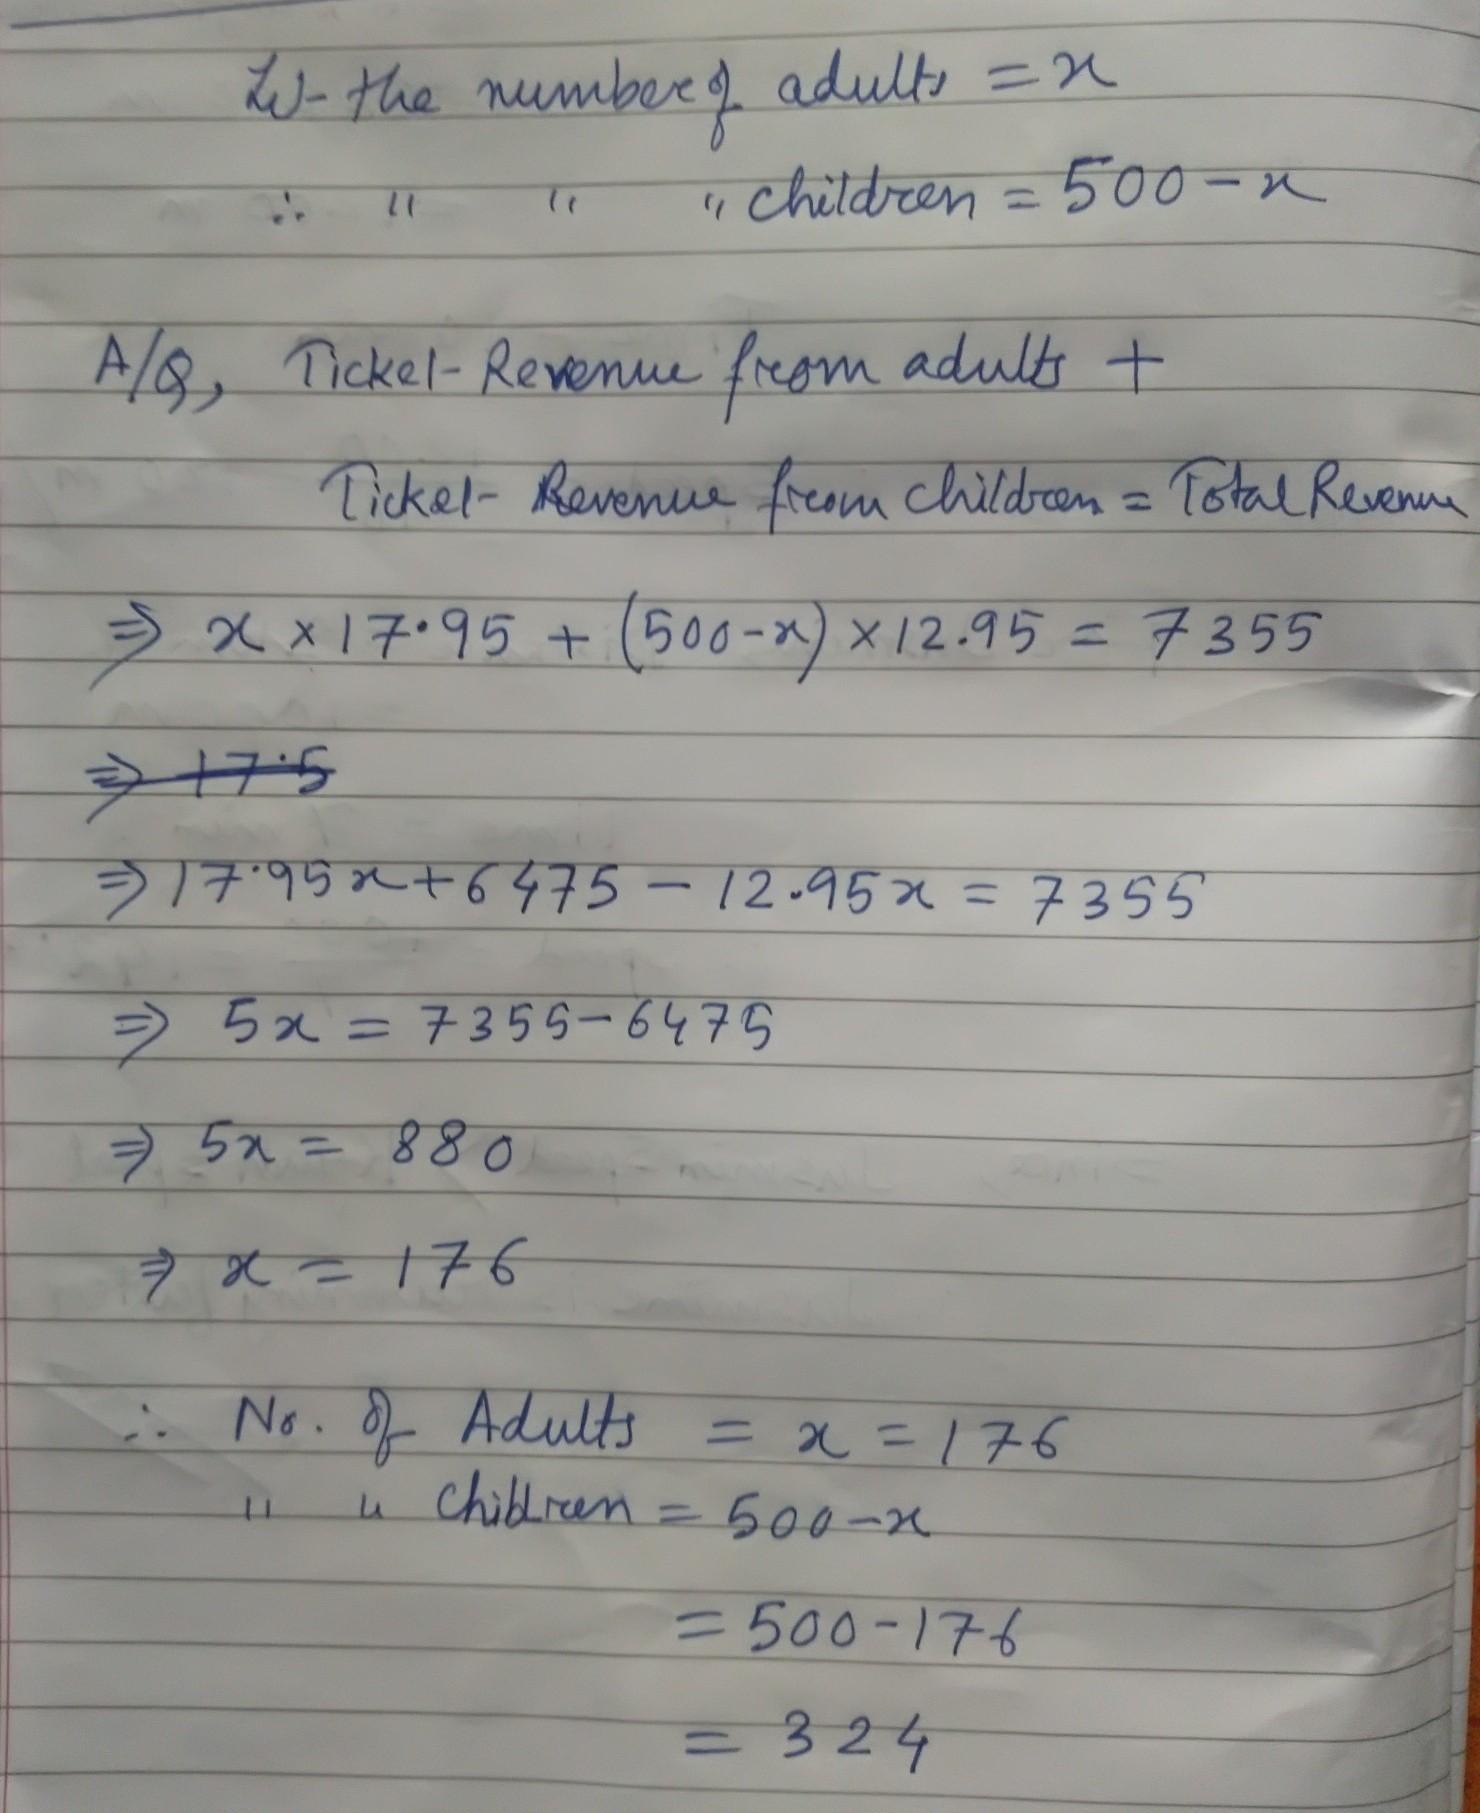 Let the number of adults = x
∴ " " " children = 500 - x
A/Q, Ticket Revenue from adults +
Ticket Revenue from children = Total Revenue
⇒ x × 17.95 + (500-x) × 12.95 = 7355
⇒ 17.5
⇒ 17.95x + 6475 - 12.95x = 7355
⇒ 5x = 7355 - 6475
⇒ 5x = 880
⇒ x = 176
∴ No. of Adults = x = 176
" " Children = 500 - x
= 500 - 176
= 324